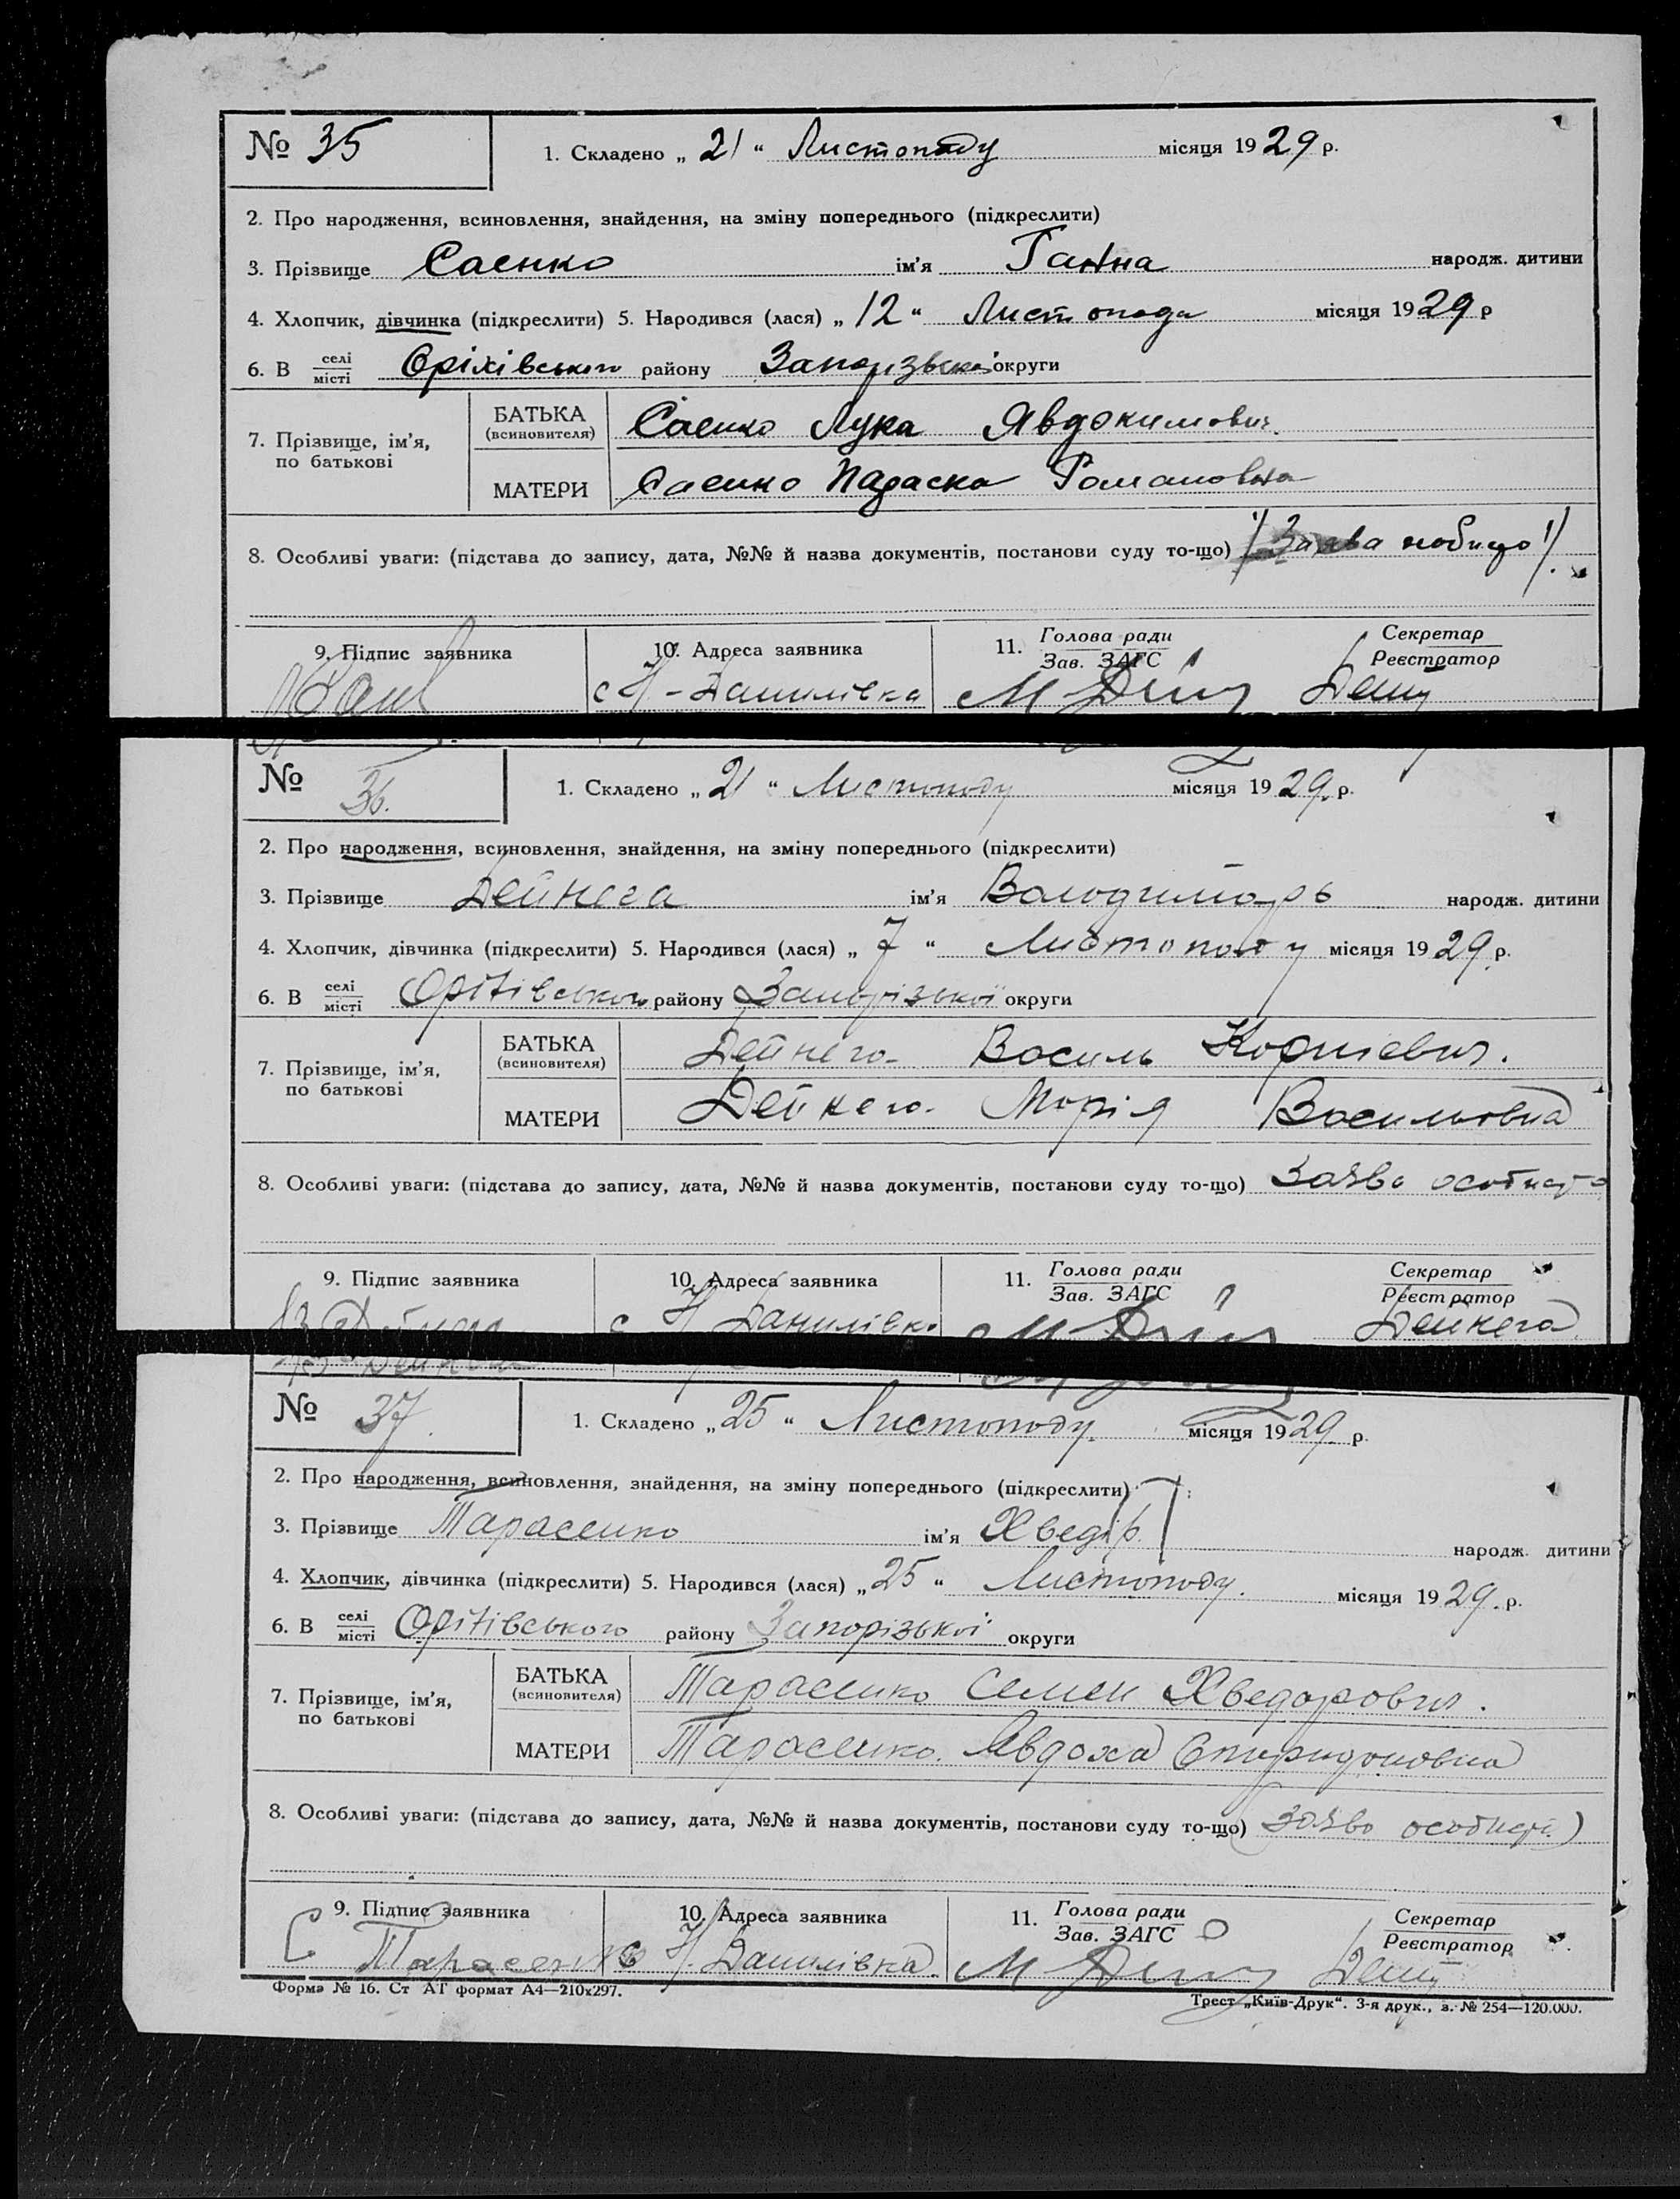 № 35
1. Складено „ 21 “ Листопаду місяця 1929 р.
2. Про народження, всиновлення, знайдення, на зміну попереднього (підкреслити)
3. Прізвище Саєнко ім’я Ганна народж. дитини
4. Хлопчик, дівчинка (підкреслити) 5. Народився (лася) „ 12 “ Листопада місяця 1929 р
6. В селі місті Оріхівського району Запорізької округи
7. Прізвище, ім’я, по батькові
БАТЬКА (всиновителя) Саенко Лука Явдокимович.
МАТЕРИ Саенко Параска Романовна
8. Особливі уваги: (підстава до запису, дата, №№ й назва документів, постанови суду то-що) Заява
9. Підпис заявника
10. Адреса заявника
11. Голова ради Зав. ЗАГС
Секретар Реєстратор
с Н-Данилівка
№ 36.
1. Складено „ 21 “ Листопаду місяця 1929. р.
2. Про народження, всиновлення, знайдення, на зміну попереднього (підкреслити)
3. Прізвище Дейнега ім’я Володимирь народж. дитини
4. Хлопчик, дівчинка (підкреслити) 5. Народився (лася) „ 7 “ Листопаду місяця 1929. р.
6. В селі місті Оріхівського району Запорізької округи
7. Прізвище, ім’я, по батькові
БАТЬКА (всиновителя) Дейнега Василь Корнієвич.
МАТЕРИ Дейнега Марія Васильовна
8. Особливі уваги: (підстава до запису, дата, №№ й назва документів, постанови суду то-що) Заява особиста
9. Підпис заявника
10. Адреса заявника
11. Голова ради Зав. ЗАГС
Секретар Реєстратор
с Н Данилівка
Дейнега
№ 37.
1. Складено „ 25 “ Листопаду. місяця 1929. р.
2. Про народження, всиновлення, знайдення, на зміну попереднього (підкреслити)
3. Прізвище Тарасенко ім’я Хведір. народж. дитини
4. Хлопчик, дівчинка (підкреслити) 5. Народився (лася) „ 25 “ Листопаду. місяця 1929. р.
6. В селі місті Оріхівського району Запорізької округи
7. Прізвище, ім’я, по батькові
БАТЬКА (всиновителя) Тарасенко Семен Хведорович.
МАТЕРИ Тарасенко. Явдоха Спиридоновна
8. Особливі уваги: (підстава до запису, дата, №№ й назва документів, постанови суду то-що) (заява особиста)
9. Підпис заявника
10. Адреса заявника
11. Голова ради Зав. ЗАГС
Секретар Реєстратор
Тарасенко
с Н-Данилівка.
Форма № 16. Ст АТ формат А4—210х297.
Трест „Київ-Друк“. 3-я друк., з. № 254—120.000.